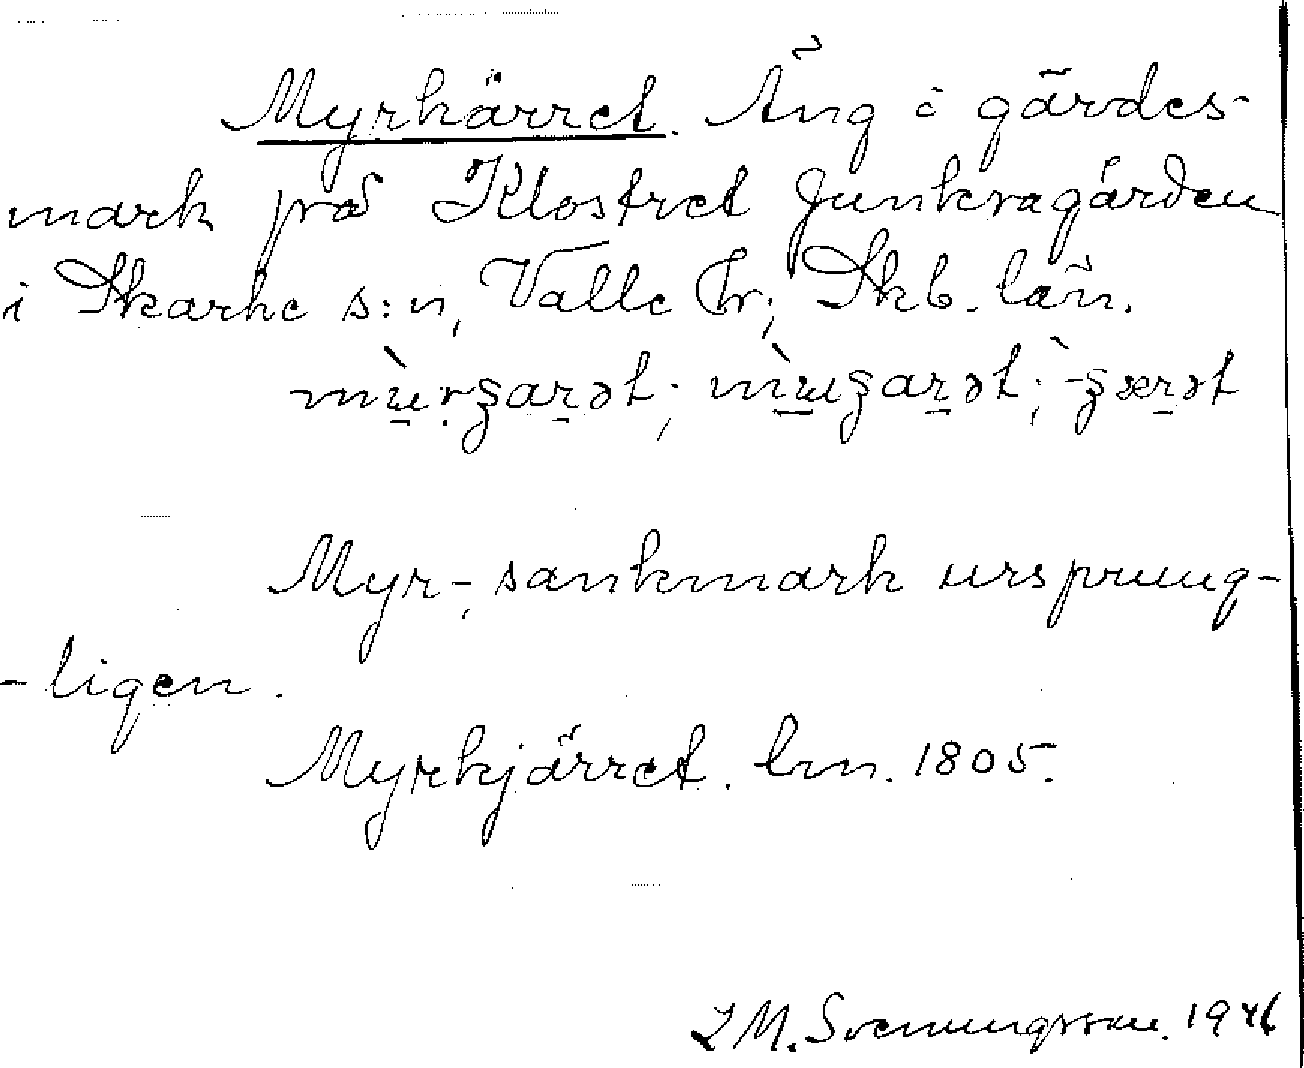 Myrkärret. Äng i gärdes-
mark på Klostret Junkragården
i Skarke s:n, Valle hr; Skb. län.
Myr-, sankmark ursprung-
-ligen.
Myrkjärret. lm. 1805.
M. Svenungsson. 1946